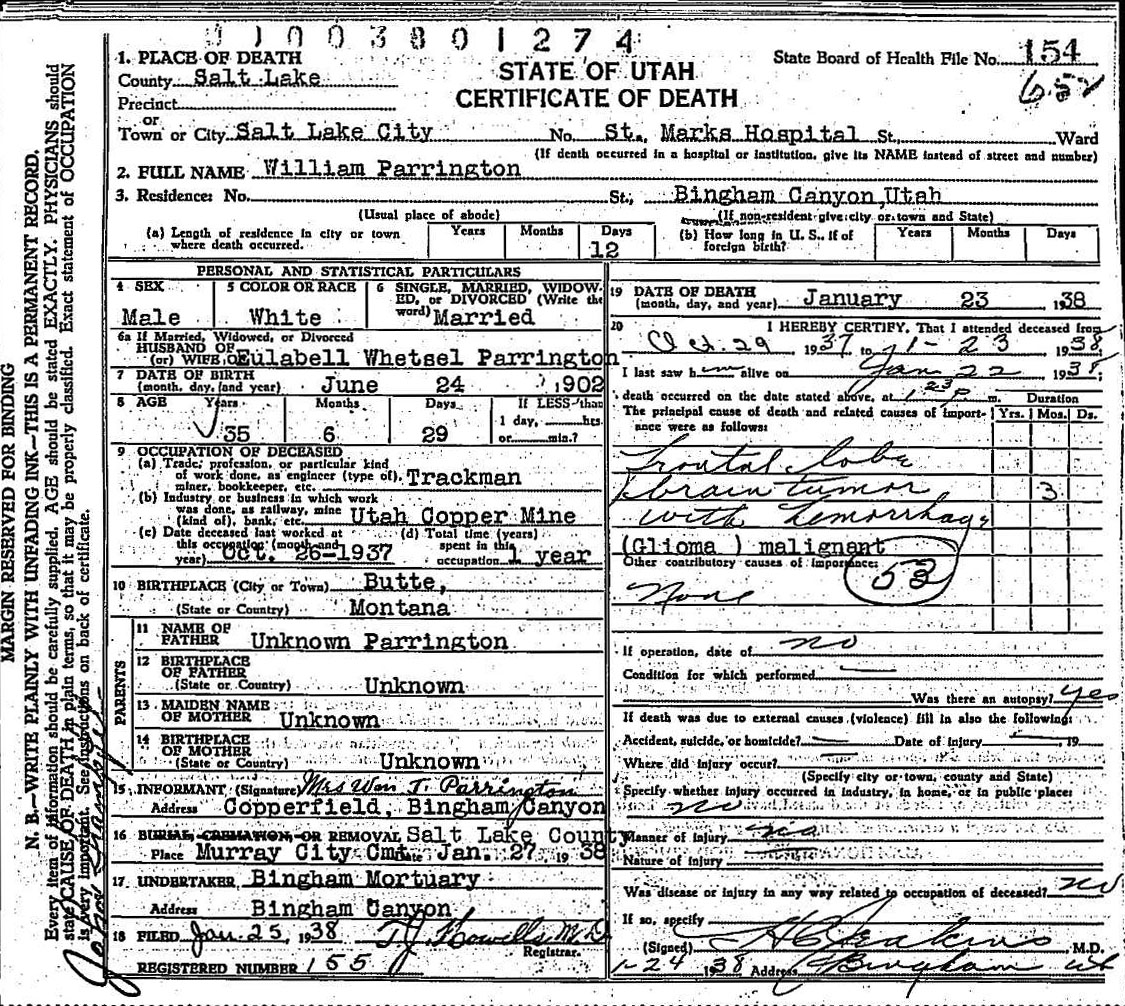 0100380 1274
State Board of Health File No. 154
652
STATE OF UTAH
CERTIFICATE OF DEATH
1. PLACE OF DEATH
County Salt Lake
Precinct
or
Town or City Salt Lake City No. St., Marks Hospital St., Ward
(If death occurred in a hospital or institution, give its NAME instead of street and number)
2. FULL NAME William Parrington
3. Residence: No. St., Bingham Canyon, Utah
(Usual place of abode) (If non-resident give city or town and State)
(a) Length of residence in city or town where death occurred. Years Months Days 12
(b) How long in U. S., if of foreign birth? Years Months Days
PERSONAL AND STATISTICAL PARTICULARS
4 SEX Male
5 COLOR OR RACE White
6 SINGLE, MARRIED, WIDOWED, or DIVORCED (Write the word) Married
6a If Married, Widowed, or Divorced
HUSBAND OF
(or) WIFE OF Eulabell Whetsel Parrington
7 DATE OF BIRTH
(month, day, and year) June 24 1902
8 AGE Years 35 Months 6 Days 29 If LESS than 1 day, hrs. or min.?
9 OCCUPATION OF DECEASED
(a) Trade, profession, or particular kind of work done, as engineer (type of), miner, bookkeeper, etc. Trackman
(b) Industry or business in which work was done, as railway, mine (kind of), bank, etc. Utah Copper Mine
(c) Date deceased last worked at this occupation (month and year) Oct. 26-1937
(d) Total time (years) spent in this occupation 1 year
10 BIRTHPLACE (City or Town) Butte,
(State or Country) Montana
PARENTS
11 NAME OF FATHER Unknown Parrington
12 BIRTHPLACE OF FATHER
(State or Country) Unknown
13 MAIDEN NAME OF MOTHER Unknown
14 BIRTHPLACE OF MOTHER
(State or Country) Unknown
15 INFORMANT (Signature) Mrs Wm. T. Parrington
Address Copperfield, Bingham Canyon
16 BURIAL, CREMATION, OR REMOVAL Salt Lake County
Place Murray City Cmt Date Jan. 27, 1938
17 UNDERTAKER Bingham Mortuary
Address Bingham Canyon
18 FILED Jan. 25, 1938 T.J. Howells M.D.
Registrar.
REGISTERED NUMBER 155
19 DATE OF DEATH
(month, day, and year) January 23 1938
20 I HEREBY CERTIFY, That I attended deceased from
Oct. 29 1937 to 1-23 1938
I last saw him alive on Jan 22 1938;
death occurred on the date stated above, at 1 23 P m. Duration
The principal cause of death and related causes of importance were as follows: Yrs. Mos. Ds.
Frontal lobe
brain tumor 3
with hemorrhage
(Glioma) malignant
Other contributory causes of importance:
53
None
If operation, date of no
Condition for which performed
Was there an autopsy? yes
If death was due to external causes (violence) fill in also the following:
Accident, suicide, or homicide? Date of injury 19
Where did injury occur?
(Specify city or town, county and State)
Specify whether injury occurred in industry, in home, or in public place:
no
Manner of injury no
Nature of injury
Was disease or injury in any way related to occupation of deceased? no
If so, specify
(Signed) M.D.
1-24 1938 Address Bingham Ut
MARGIN RESERVED FOR BINDING
N. B.—WRITE PLAINLY WITH UNFADING INK—THIS IS A PERMANENT RECORD.
Every item of information should be carefully supplied. AGE should be stated EXACTLY. PHYSICIANS should
state CAUSE OF DEATH in plain terms, so that it may be properly classified. Exact statement of OCCUPATION
is very important. See instructions on back of certificate.